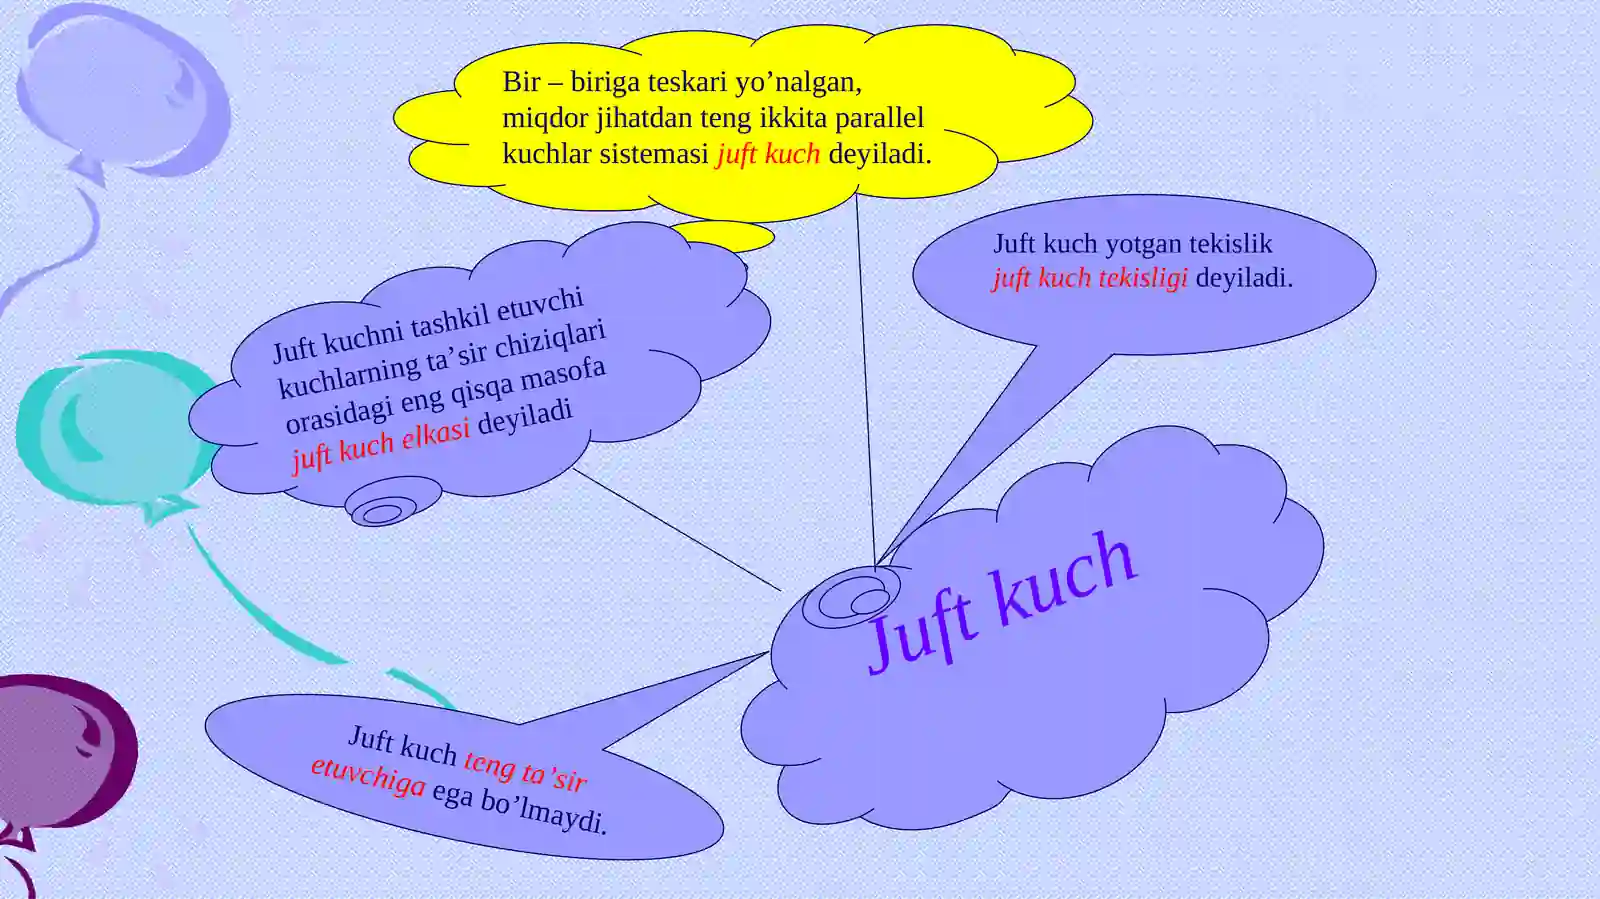 Bir – biriga teskari yo’nalgan,
miqdor jihatdan teng ikkita parallel
kuchlar sistemasi juft kuch deyiladi.
Juft kuch yotgan tekislik
juft kuch tekisligi deyiladi.
Juft kuchni tashkil etuvchi
kuchlarning ta’sir chiziqlari
orasidagi eng qisqa masofa
juft kuch elkasi deyiladi
Juft kuch
Juft kuch teng ta’sir
etuvchiga ega bo’lmaydi.